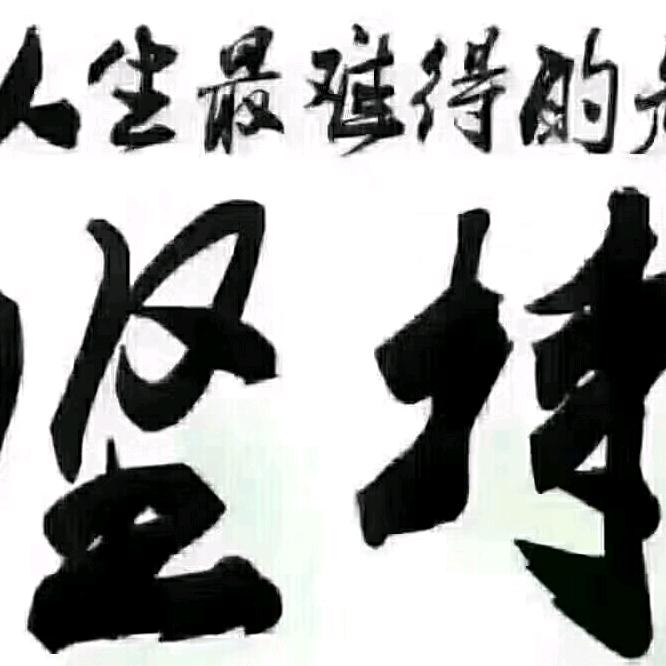 人生最难得的
坚持